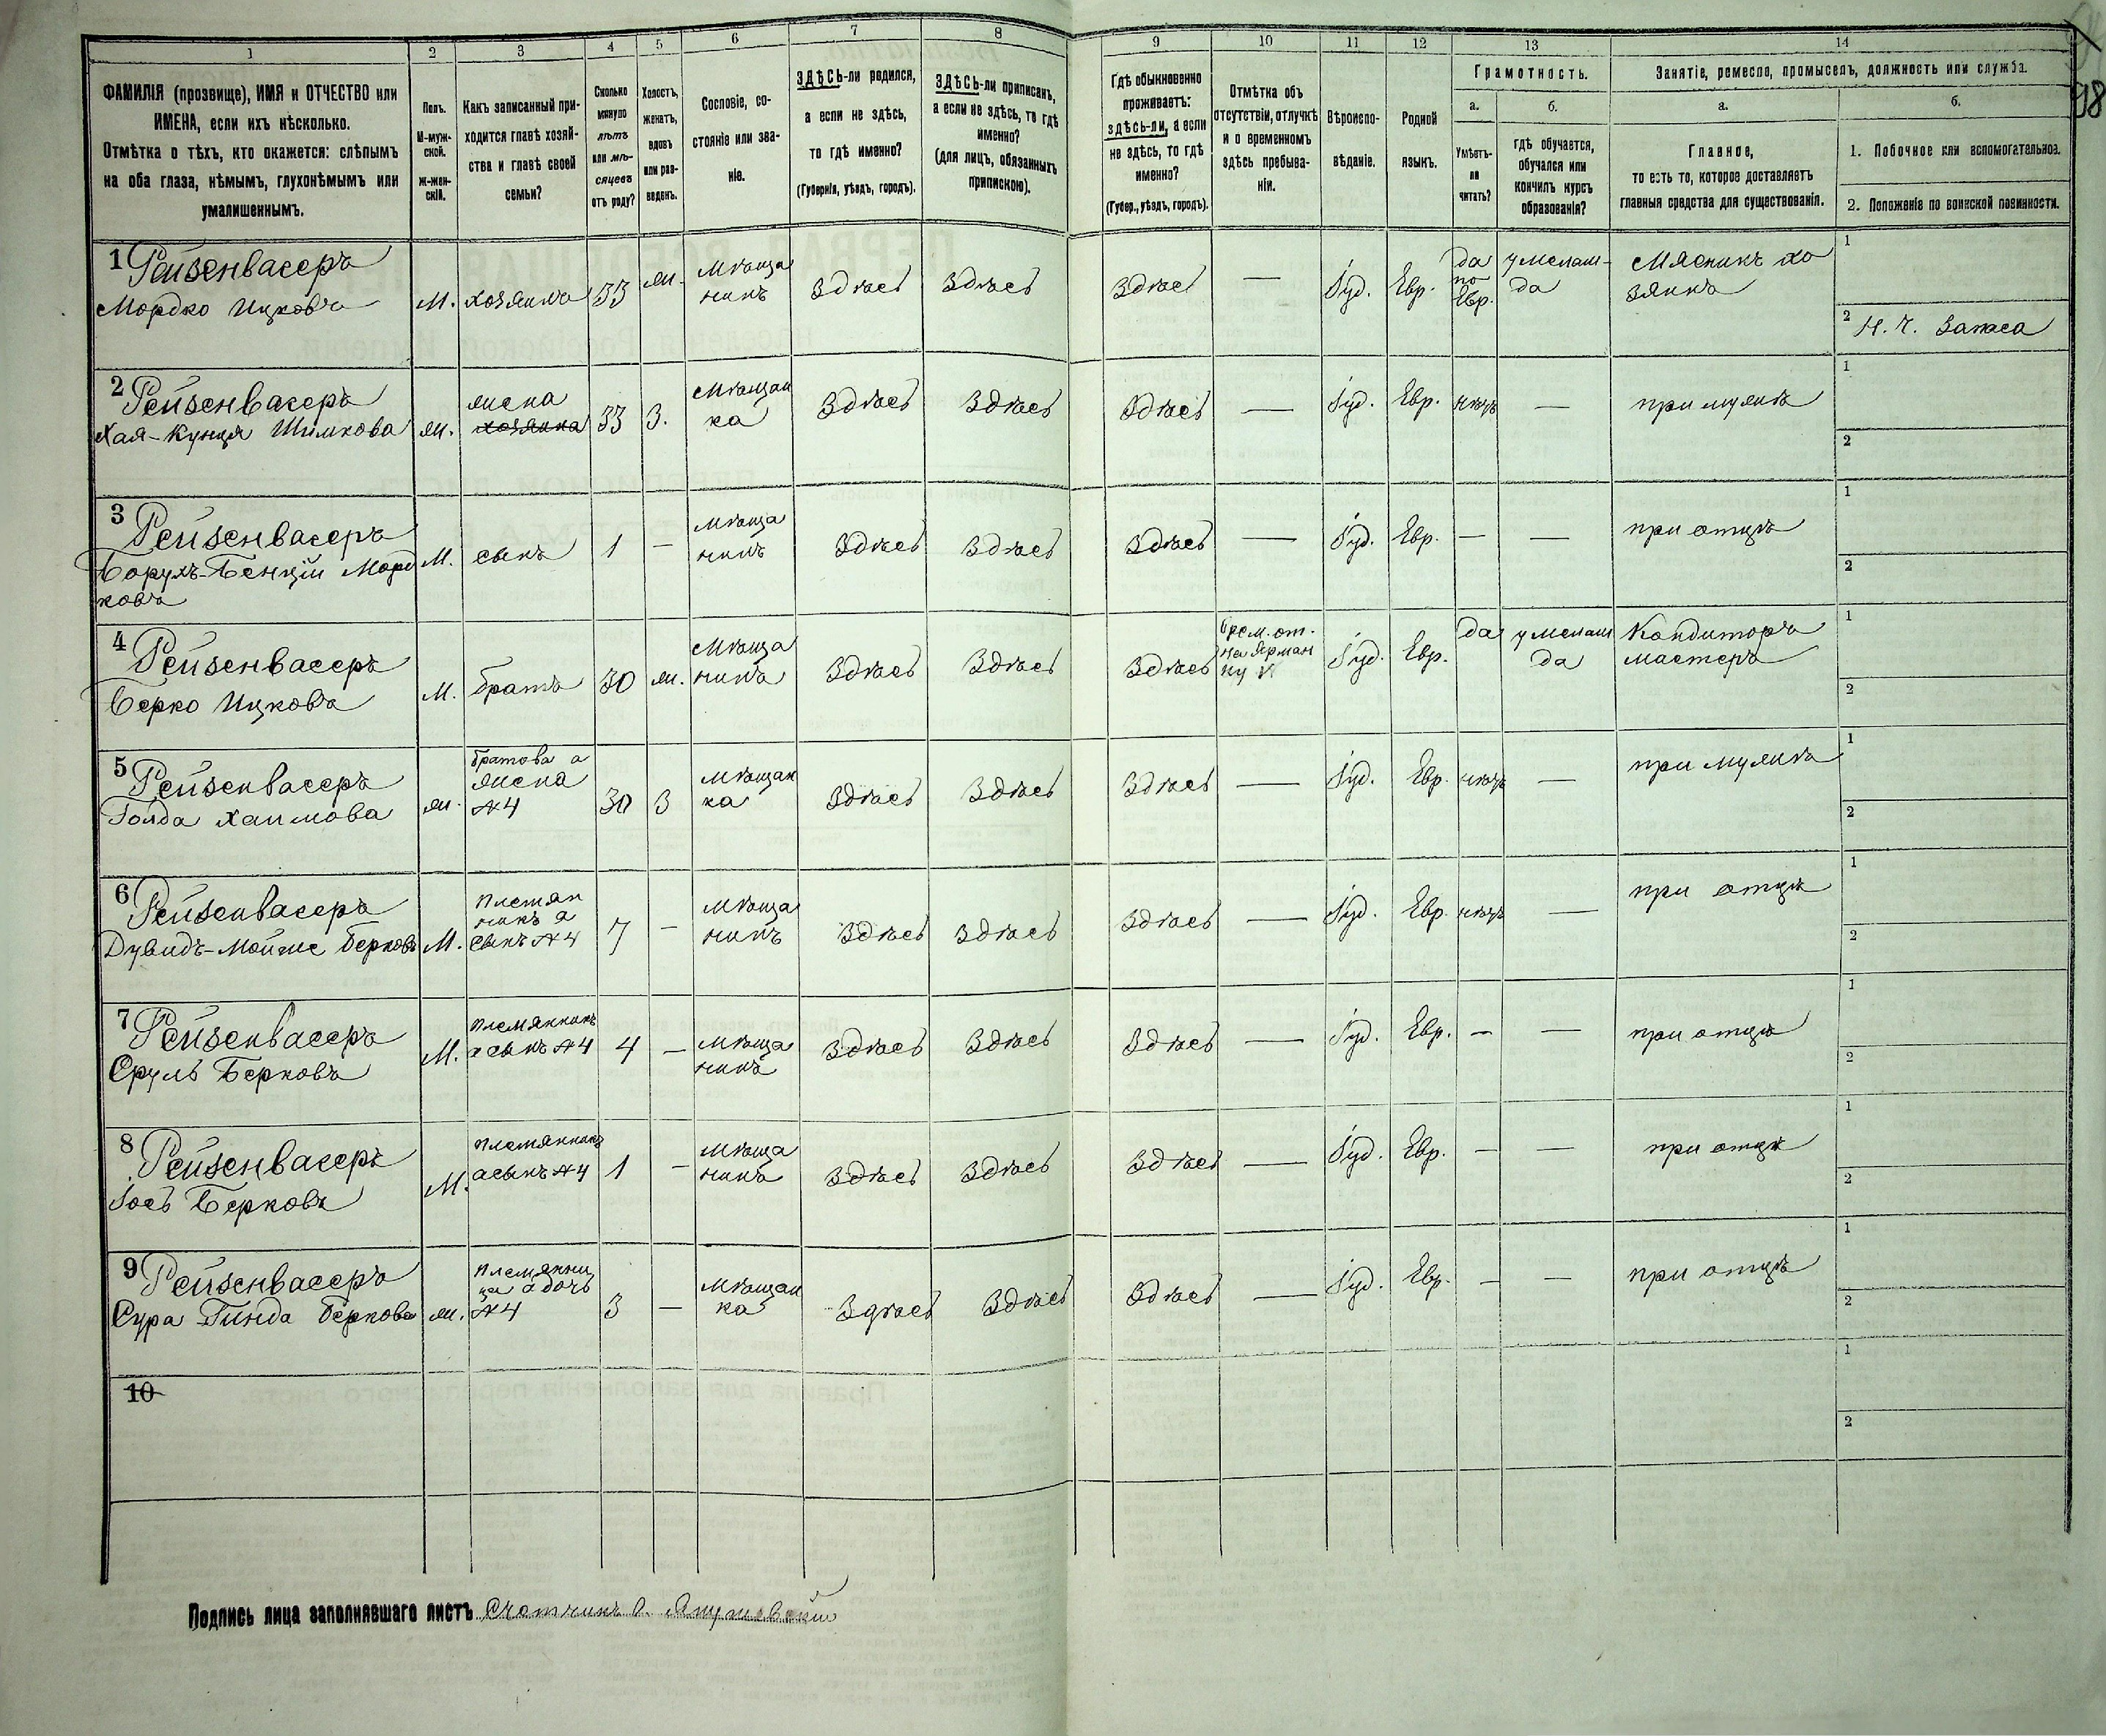 1 2 3 4 5 6 7 8 9 10 11 12 13 14
98
ФАМИЛІЯ (прозвище), ИМЯ и ОТЧЕСТВО или
ИМЕНА, если ихъ нѣсколько.
Отмѣтка о тѣхъ, кто окажется: слѣпымъ
на оба глаза, нѣмымъ, глухонѣмымъ или
умалишеннымъ.
Полъ.
М-муж-
ской.
Ж-жен-
скій.
Какъ записанный при-
ходится главѣ хозяй-
ства и главѣ своей
семьи?
Сколько
минуло
лѣтъ
или мѣ-
сяцевъ
отъ роду?
Холостъ,
женатъ,
вдовъ
или раз-
веденъ.
Сословіе, со-
стояніе или зва-
ніе.
ЗДѢСЬ-ли родился,
а если не здѣсь,
то гдѣ именно?
(Губернія, уѣздъ, городъ).
ЗДѢСЬ-ли приписанъ,
а если не здѣсь, то гдѣ
именно?
(для лицъ, обязанныхъ
припискою).
Гдѣ обыкновенно
проживаетъ:
здѣсь-ли, а если
не здѣсь, то гдѣ
именно?
(Губер., уѣздъ, городъ).
Отмѣтка объ
отсутствіи, отлучкѣ
и о временномъ
здѣсь пребыва-
ніи.
Вѣроиспо-
вѣданіе.
Родной
языкъ.
Грамотность.
а.
Умѣетъ-
ли
читать?
б.
гдѣ обучается,
обучался или
кончилъ курсъ
образованія?
Занятіе, ремесло, промыселъ, должность или служба.
а.
Главное,
то есть то, которое доставляетъ
главныя средства для существованія.
б.
1. Побочное или вспомогательное.
2. Положеніе по воинской повинности.
1 Рейзенвасеръ
Мордко Ицковъ
М.
хозяинъ
33
ж.
Мѣща
нинъ
Здѣсь
Здѣсь
Здѣсь
—
Іуд.
Евр.
да
по
Евр.
у мелам-
да
Мясникъ хо
зяинъ
1
2 Н. Ч. Запаса
2 Рейзенвасеръ
Хая-Кунця Шимкова
ж.
жена
хозяина
33
З.
Мѣщан
ка
Здѣсь
Здѣсь
Здѣсь
—
Іуд.
Евр.
нѣтъ
—
при мужѣ
1
2
3 Рейзенвасеръ
Борухъ-Бенціи Морд
ковъ
М.
сынъ
1
—
Мѣща
нинъ
Здѣсь
Здѣсь
Здѣсь
—
Іуд.
Евр.
—
—
при отцѣ
1
2
4 Рейзенвасеръ
Берко Ицковъ
М.
братъ
30
ж.
Мѣща
нинъ
Здѣсь
Здѣсь
Здѣсь
врем. от.
на Ярман
ку
Іуд.
Евр.
да
у мелам
да
Кондиторъ
мастеръ
1
2
5 Рейзенвасеръ
Голда Хаимова
ж.
братова а
жена
№4
30
З
Мѣщан
ка
Здѣсь
Здѣсь
Здѣсь
—
Іуд.
Евр.
нѣтъ
—
при мужѣ
1
2
6 Рейзенвасеръ
Дувидъ-Мойше Берковъ
М.
племян
никъ а
сынъ №4
7
—
Мѣща
нинъ
Здѣсь
Здѣсь
Здѣсь
—
Іуд.
Евр.
нѣтъ
—
при отцѣ
1
2
7 Рейзенвасеръ
Сруль Берковъ
М.
племянникъ
а сынъ №4
4
—
Мѣща
нинъ
Здѣсь
Здѣсь
Здѣсь
—
Іуд.
Евр.
—
—
при отцѣ
1
2
8 Рейзенвасеръ
Іось Берковъ
М.
племянникъ
а сынъ №4
1
—
Мѣща
нинъ
Здѣсь
Здѣсь
Здѣсь
—
Іуд.
Евр.
—
—
при отцѣ
1
2
9 Рейзенвасеръ
Сура-Гинда Беркова
ж.
племянни
ца а дочь
№4
3
—
Мѣщан
ка
Здѣсь
Здѣсь
Здѣсь
—
Іуд.
Евр.
—
—
при отцѣ
1
2
10
1
2
Подпись лица заполнявшаго листъ Счетчикъ